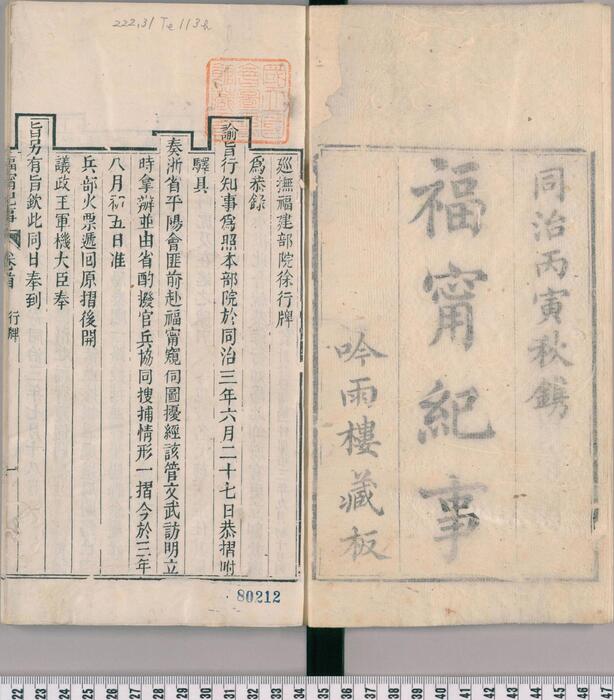 同治丙寅秋鐫
福甯紀事
吟雨樓藏板
222.31 Te 113h
廵撫福建部院徐行牌
爲恭錄
諭旨行知事爲照本部院於同治三年六月二十七日恭摺咐
驛具
奏浙省平陽會匪前赴福甯窺伺圖擾經該管文武訪明立
時拿辦並由省酌撥官兵協同搜捕情形一摺今於三年
八月初五日准
兵部火票遞回原摺後開
議政王軍機大臣奉
旨另有旨欽此同日奉到
福甯紀事 卷首 行牌 一
80212
22 23 24 25 26 27 28 29 30 31 32 33 34 35 36 37 38 39 40 41 42 43 44 45 46 47